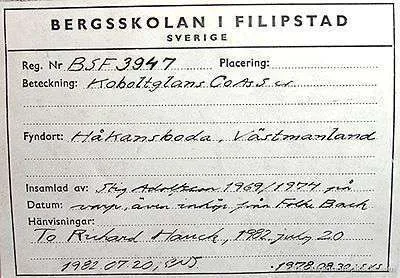 BERGSSKOLAN I FILIPSTAD
SVERIGE
Reg. Nr BSF 3947 Placering:
Beteckning: Koboltglans CoAsS
Fyndort: Håkansboda, Västmanland
Insamlad av: Stig Adolfsson 1969/1974 på
Datum: varp, även inköp från Folke Back
Hänvisningar:
To Richard Hauck, 1982, july 20
1982.07.20, 1978.08.30,